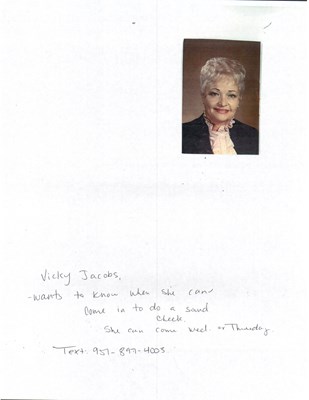 Vicky Jacobs,
-wants to know when she can
come in to do a sand
check.
She can come Wed. or Thursday.
Text: 951-897-4003